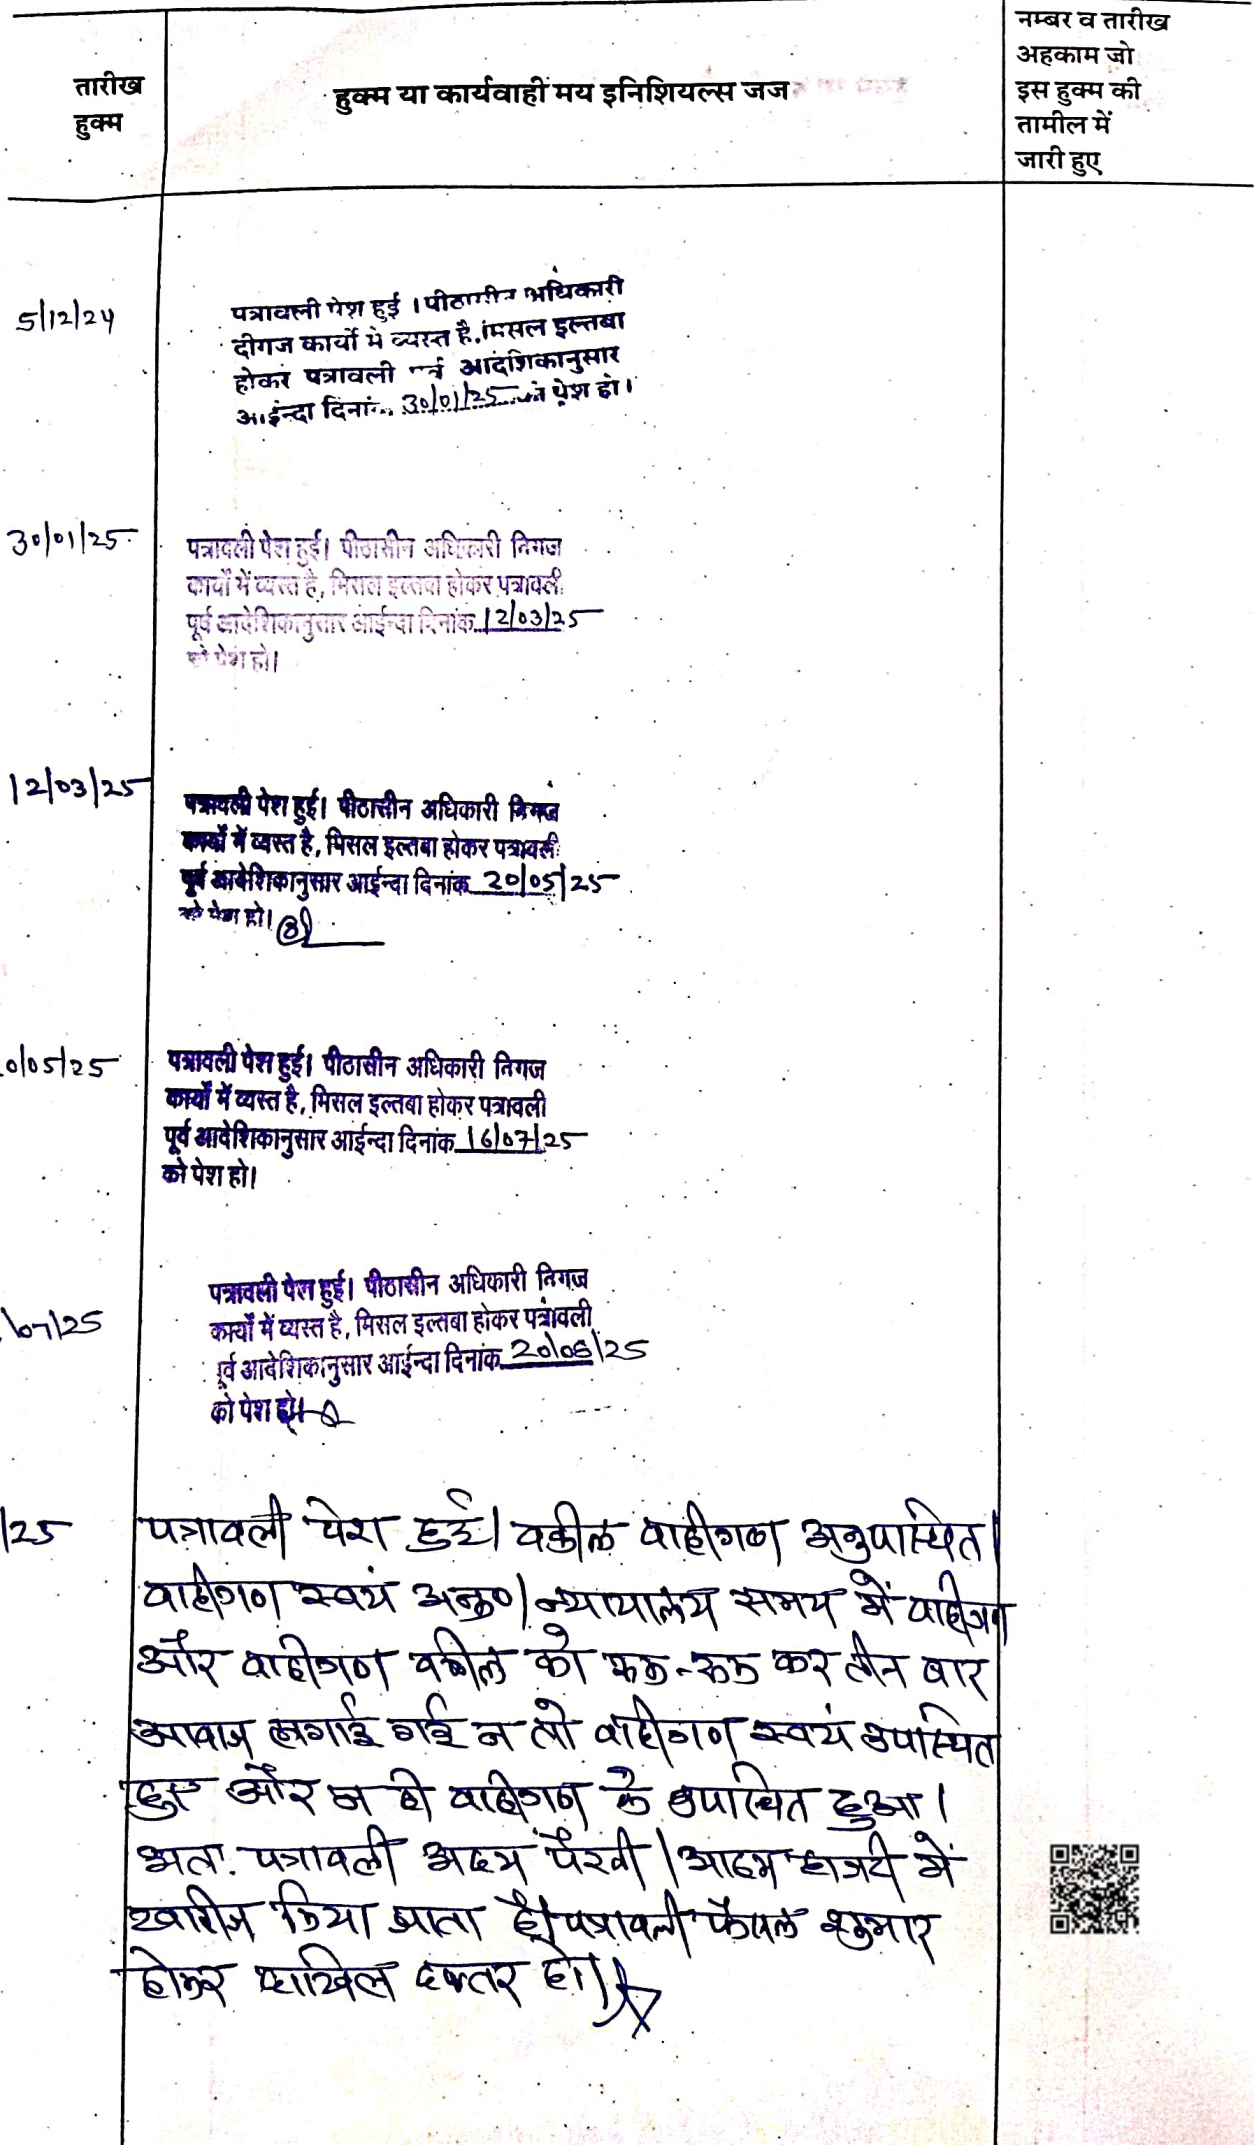 तारीख
हुक्म
हुक्म या कार्यवाही मय इनिशियल्स जज
नम्बर व तारीख
अहकाम जो
इस हुक्म की
तामील में
जारी हुए
5/12/24
पत्रावली पेश हुई । पीठासीन अधिकारी
दीगज कार्यो मे व्यस्त है, मिसल इल्तबा
होकर पत्रावली आदेशिकानुसार
आईन्दा दिनांक 30/01/25 को पेश हो।
30/01/25
पत्रावली पेश हुई। पीठासीन अधिकारी निगज
कार्यों में व्यस्त है, मिसल इल्तबा होकर पत्रावली
पूर्व आदेशिकानुसार आईन्दा दिनांक 12/03/25
को पेश हो।
12/03/25
पत्रावली पेश हुई। पीठासीन अधिकारी निगज
कार्यों में व्यस्त है, मिसल इल्तबा होकर पत्रावली
पूर्व आदेशिकानुसार आईन्दा दिनांक 20/05/25
को पेश हो।
0/05/25
पत्रावली पेश हुई। पीठासीन अधिकारी निगज
कार्यों में व्यस्त है, मिसल इल्तबा होकर पत्रावली
पूर्व आदेशिकानुसार आईन्दा दिनांक 16/07/25
को पेश हो।
/07/25
पत्रावली पेश हुई। पीठासीन अधिकारी निगज
कार्यों में व्यस्त है, मिसल इल्तबा होकर पत्रावली
पूर्व आदेशिकानुसार आईन्दा दिनांक 20/08/25
को पेश हो।
/25
पत्रावली पेश हुई। वकील वादीगण अनुपस्थित।
वादीगण स्वयं अनु०। न्यायालय समय में वादीगण
और वादीगण वकील को रूक-रूक कर तीन बार
आवाज लगाई गई न तो वादीगण स्वयं उपस्थित
हुए और न ही वादीगण के उपस्थित हुआ।
अतः पत्रावली अदम पैरवी / आदम हाजरी में
खारीज किया जाता है। पत्रावली फैसल शुमार
होकर दाखिल दफ्तर हो।